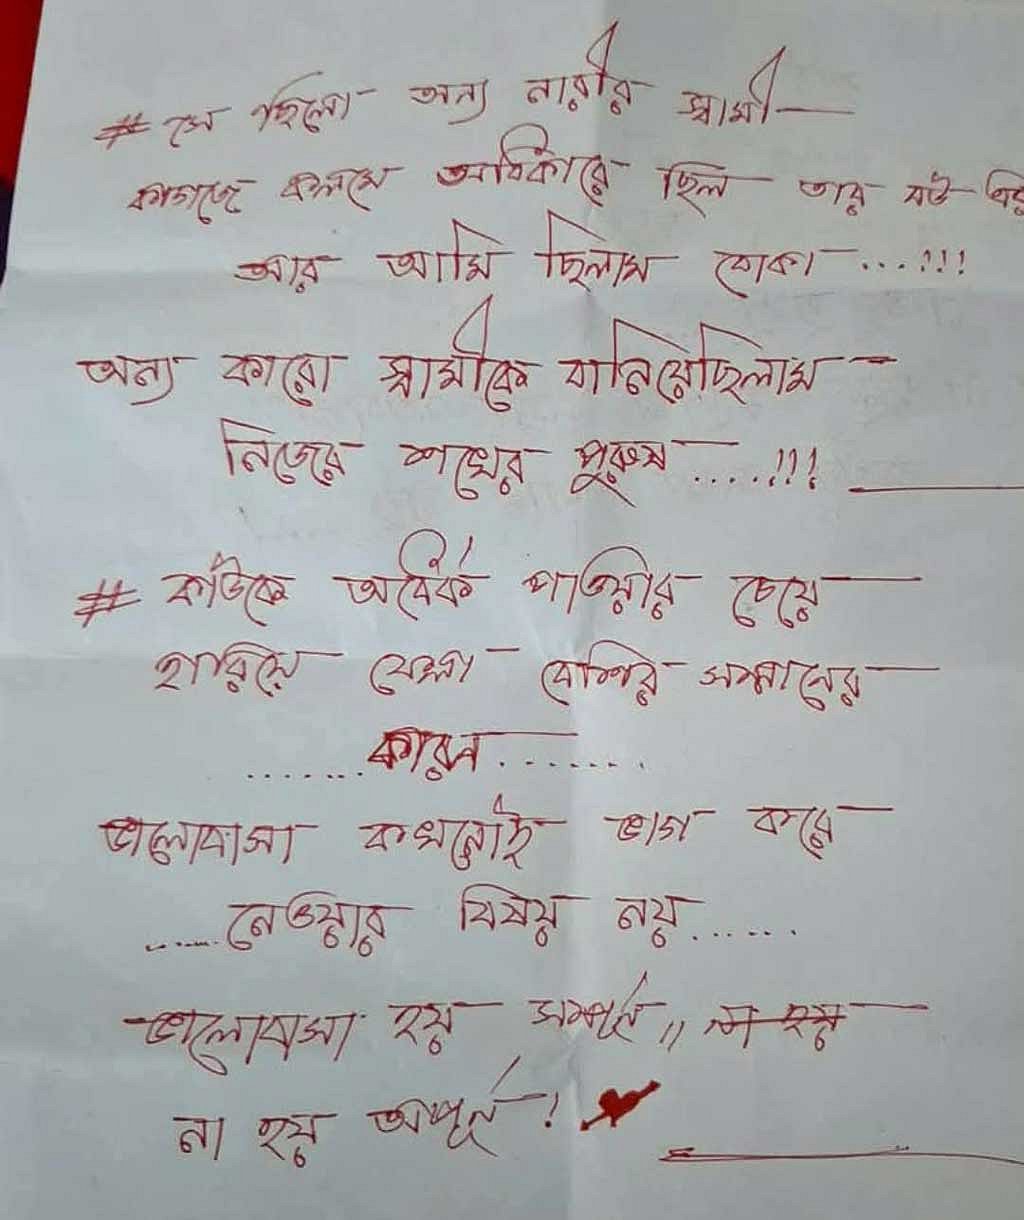 # সে ছিলো অন্য নারীর স্বামী
কাগজে কলমে অধিকারে ছিল তার বউ
আর আমি ছিলাম বোকা ...!!!
অন্য কারো স্বামীকে বানিয়েছিলাম
নিজের শখের পুরুষ ....!!!
# কাউকে অর্ধেক পাওয়ার চেয়ে
হারিয়ে ফেলা বেশির সম্মানের
....... কারন .......
ভালোবাসা কখনোই ভাগ করে
...... নেওয়ার বিষয় নয় ......
ভালোবাসা হয় সম্পূর্ন,, না হয়
না হয় অপূর্ন !